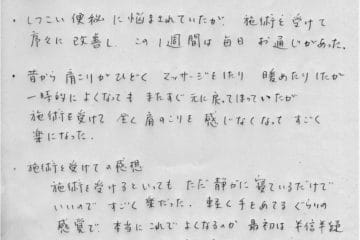 ・しつこい便秘に悩まされていたが、施術を受けて
序々に改善し、この1週間は毎日お通じがあった。
・昔から肩こりがひどく マッサージをしたり 暖めたりしたが
一時的によくなっても またすぐ元に戻ってしまっていたが
施術を受けて 全く肩のこりを感じなくなって すごく
楽になった。
・施術を受けての感想
施術を受けるといっても ただ静かに寝ているだけで
いいので すごく楽だった。軽く手をあてるぐらいの
感覚で、本当にこれでよくなるのか 最初は半信半疑